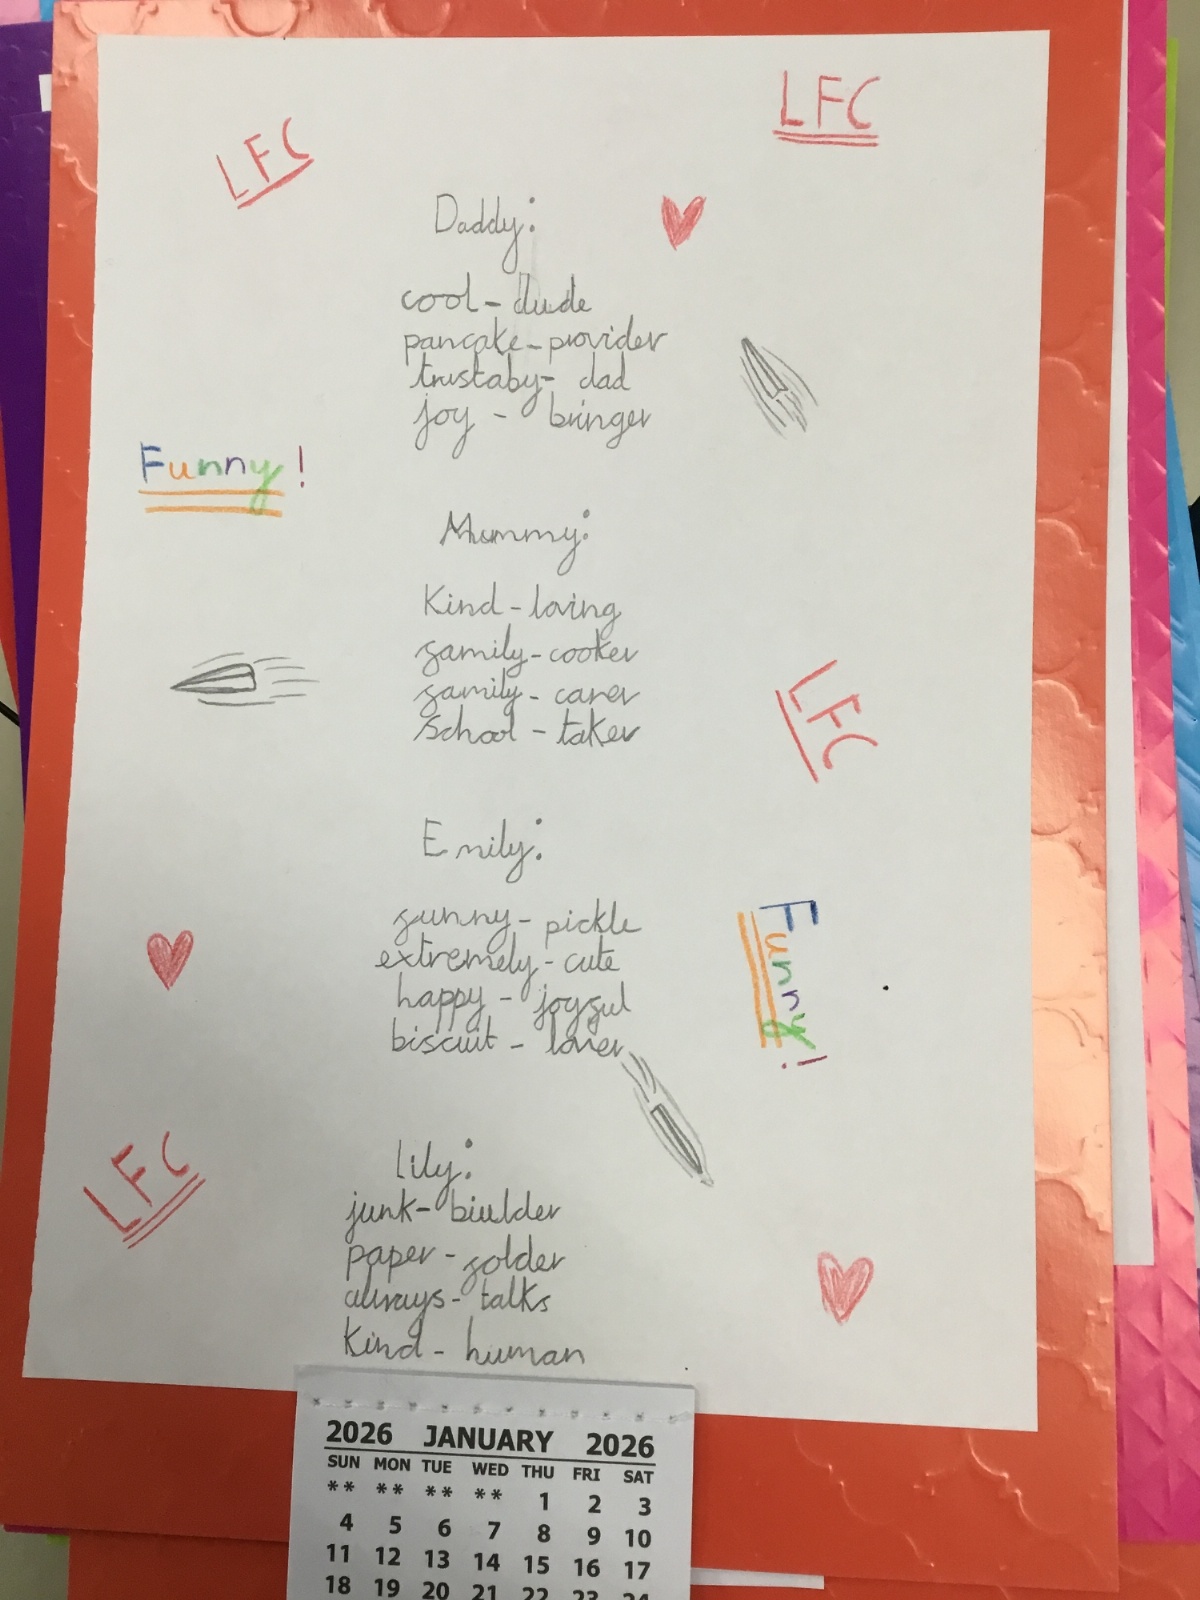 LFC
LFC
Daddy:
cool - dude
pancake - provider
trustaby - dad
joy - bringer
Funny!
Mummy:
Kind - loving
family - cooker
family - carer
School - taker
LFC
Emily:
funny - pickle
extremely - cute
happy - joyful
biscuit - lover
Funny!
LFC
Lily:
junk - biulder
paper - folder
always - talks
Kind - human
2026 JANUARY 2026
SUN MON TUE WED THU FRI SAT
** ** ** ** 1 2 3
4 5 6 7 8 9 10
11 12 13 14 15 16 17
18 19 20 21 22 23 24